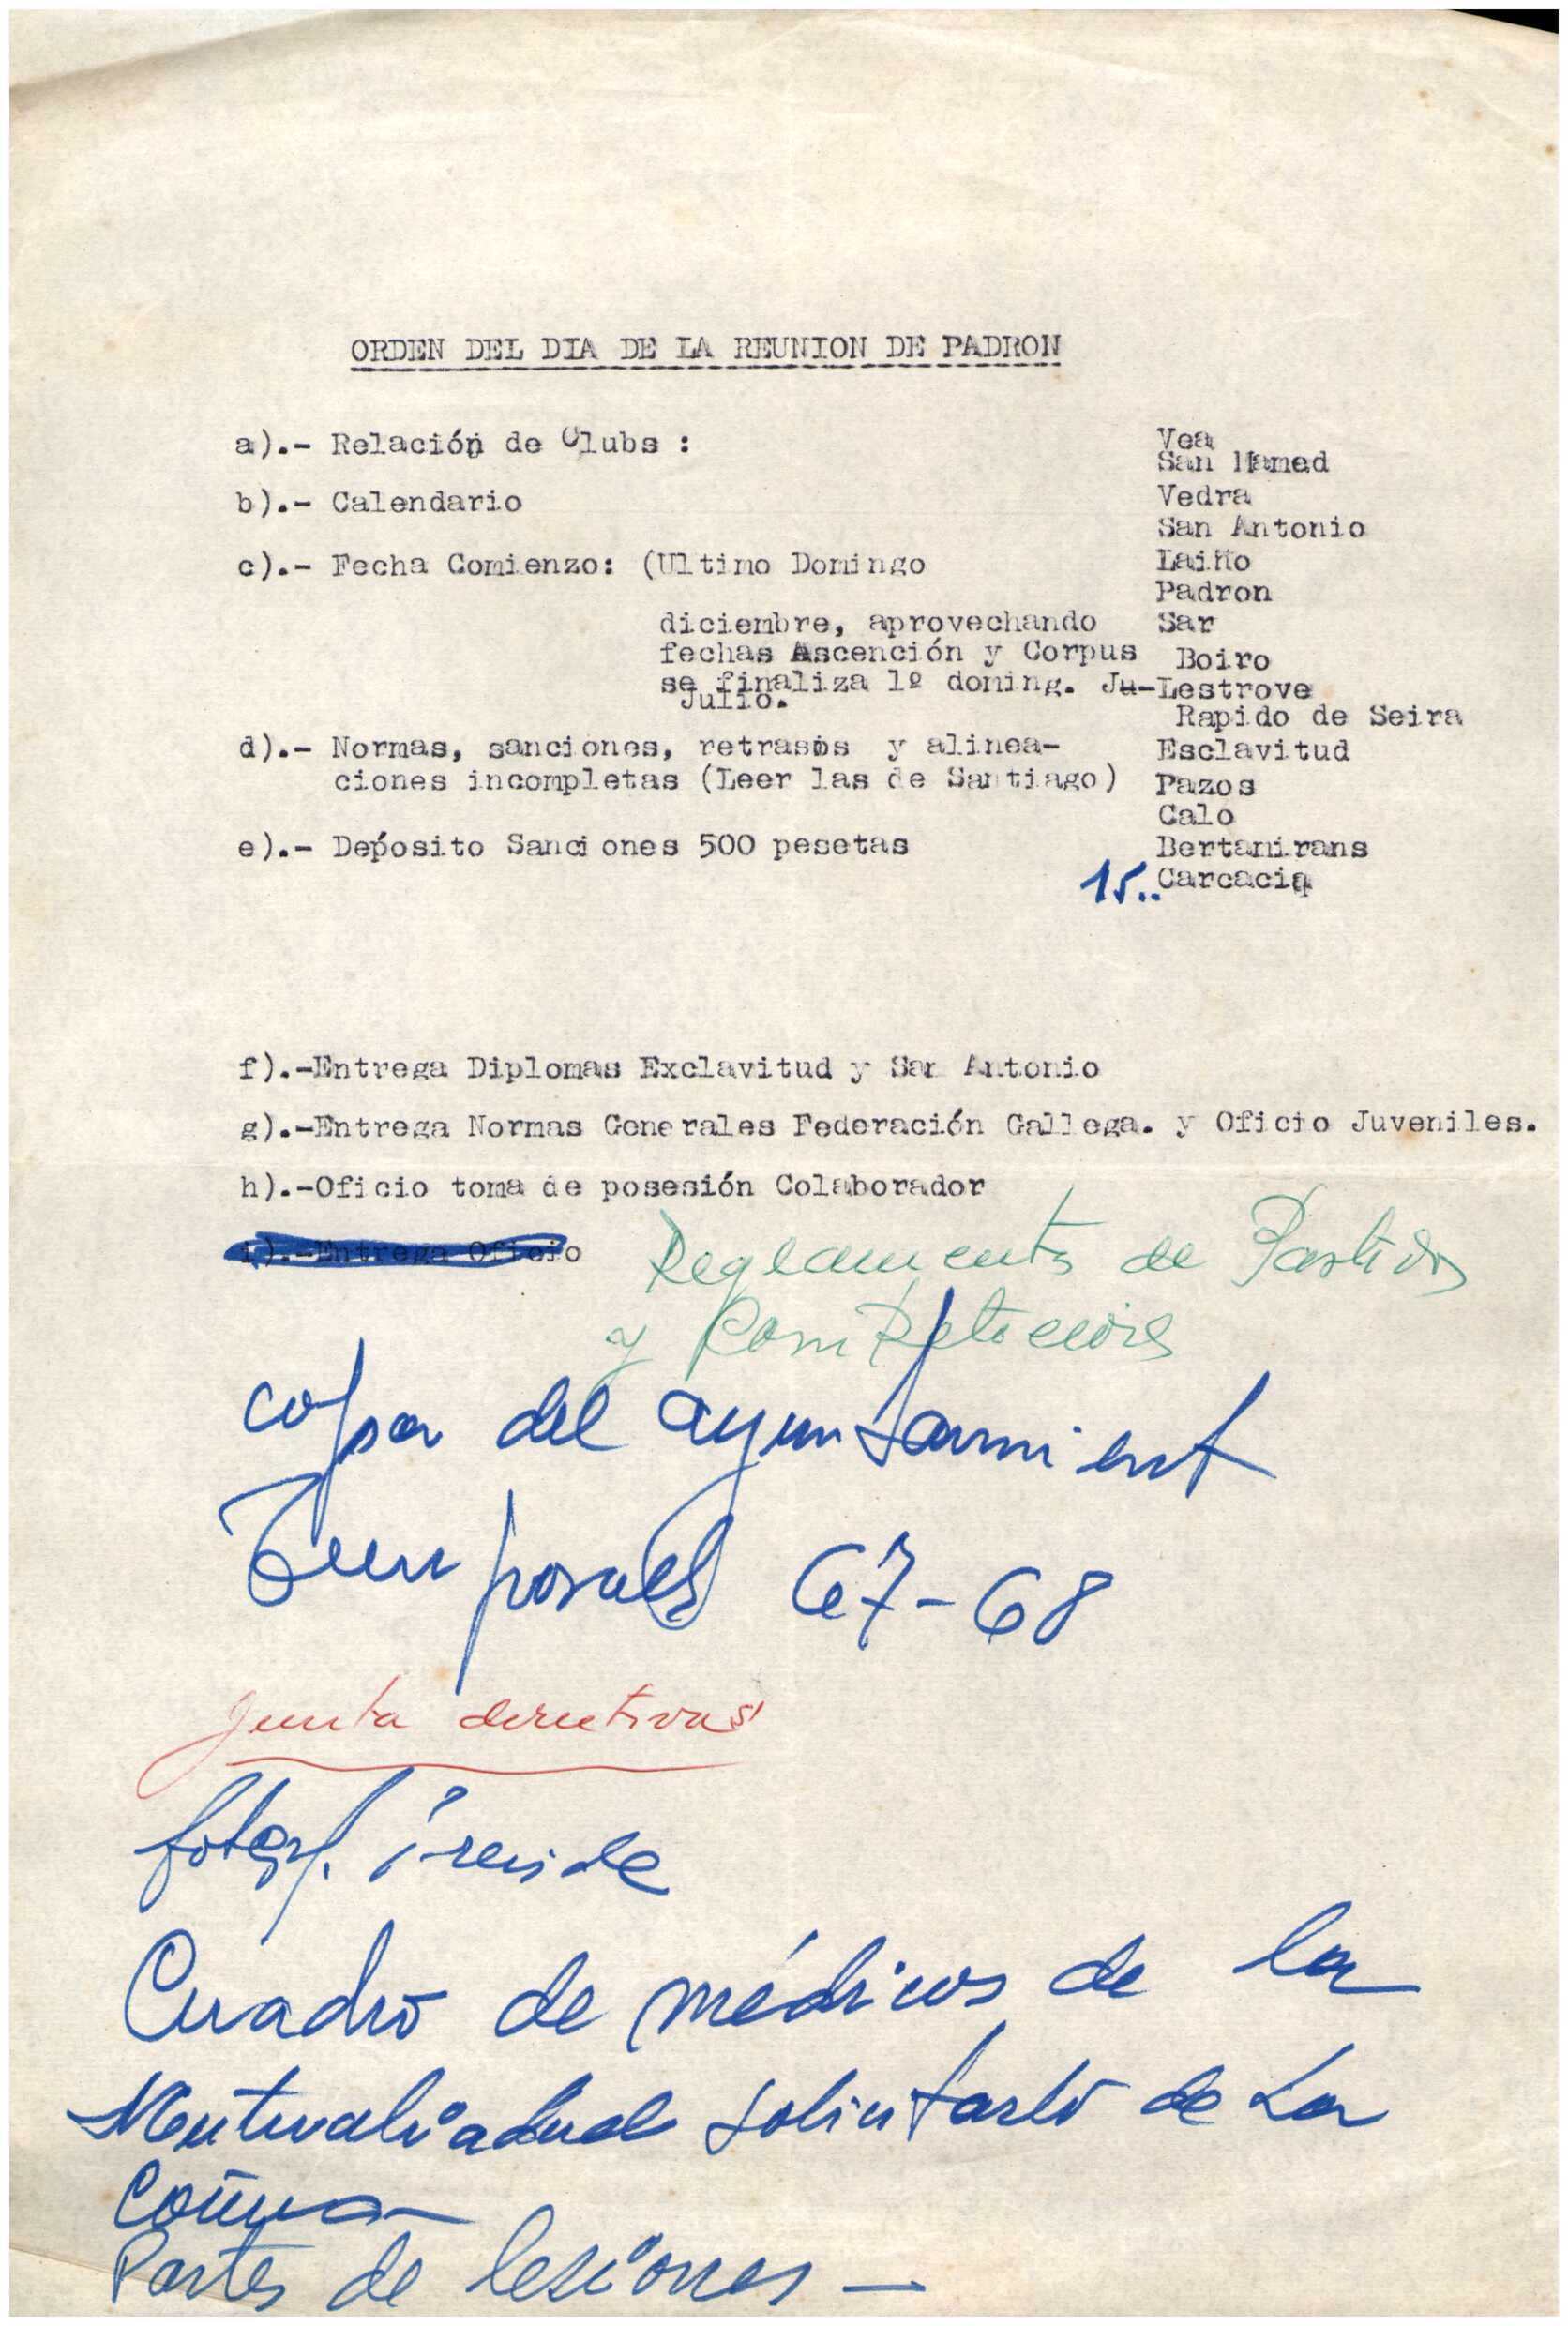 ORDEN DEL DIA DE LA REUNION DE PADRON
a).- Relación de Clubs :
b).- Calendario
c).- Fecha Comienzo: (Ultimo Domingo
diciembre, aprovechando
fechas Ascención y Corpus
se finaliza 1º doming. Ju-
Julio.
d).- Normas, sanciones, retrasos y alinea-
ciones incompletas (Leer las de Santiago)
e).- Depósito Sanciones 500 pesetas
Vea
San Mamed
Vedra
San Antonio
Laiño
Padron
Sar
Boiro
Lestrove
Rapido de Seira
Esclavitud
Pazos
Calo
Bertamirans
15.. Carcacia
f).-Entrega Diplomas Exclavitud y San Antonio
g).-Entrega Normas Generales Federación Gallega. y Oficio Juveniles.
h).-Oficio toma de posesión Colaborador
i).-Entrega Oficio
Reglamentos de Partidos
y Competiciones
copa del ayuntamient
67-68
Junta directivas
Cuadro de médicos de la
Mutualidad solicitarlo de La
Coruña
Partes de lesiones —